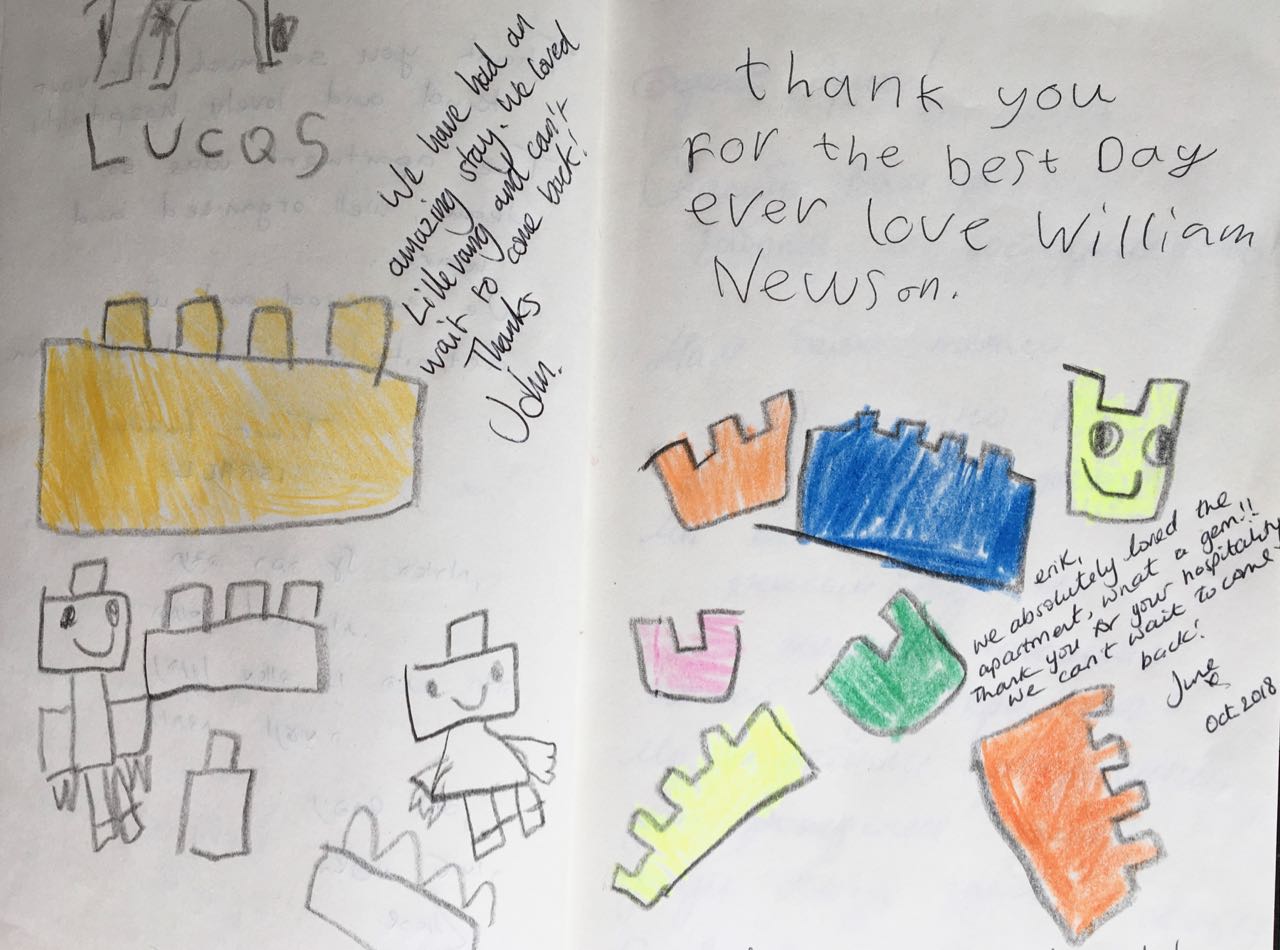 LUCAS
We have had an
amazing stay. We loved
Lillevang and can't
wait to come back!
Thanks
John.
thank you
For the best Day
ever love William
Newson.
erik,
we absolutely loved the
apartment, what a gem!!
Thank you for your hospitality
We can't wait to come
back!
June
Oct 2018